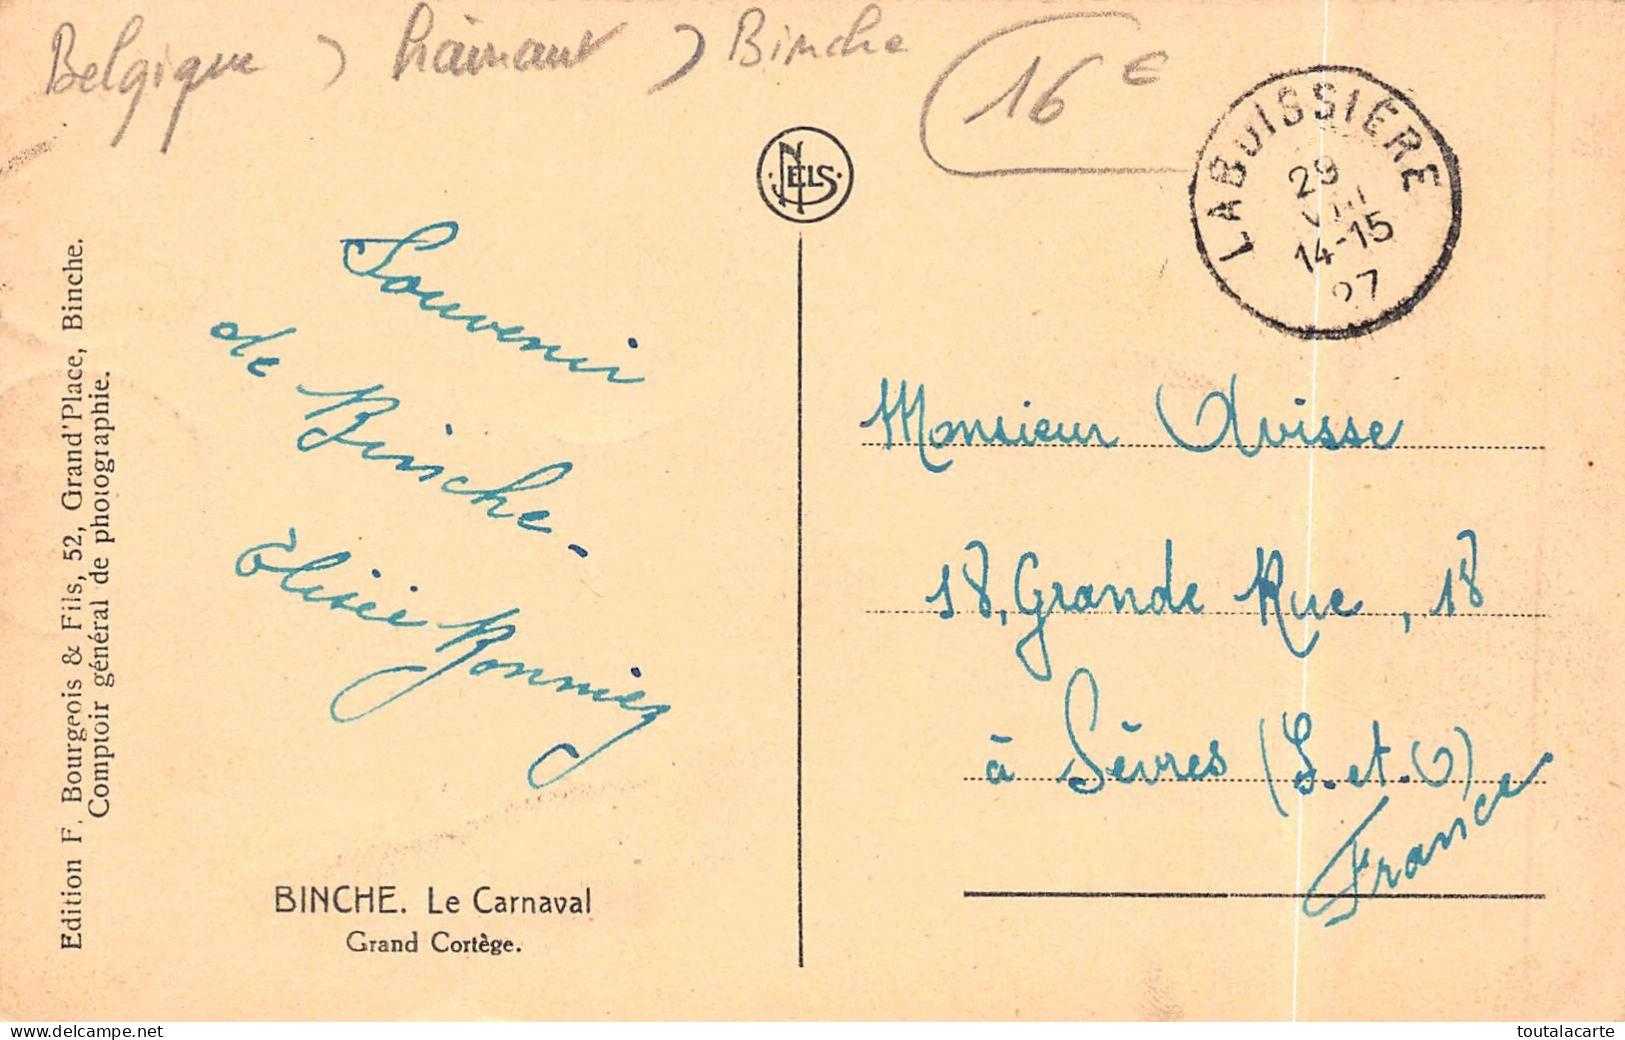 Belgique > hainaut > Binche
16 €
NELS
LABUISSIÈRE
29
VIII
14-15
27
Souvenir
de Binche-
Elisée
Monsieur Avisse
18, Grande Rue, 18
à Sèvres (S.et.O)
France
BINCHE. Le Carnaval
Grand Cortège.
Edition F. Bourgeois & Fils, 52, Grand'Place, Binche.
Comptoir général de photographie.
www.delcampe.net
toutalacarte